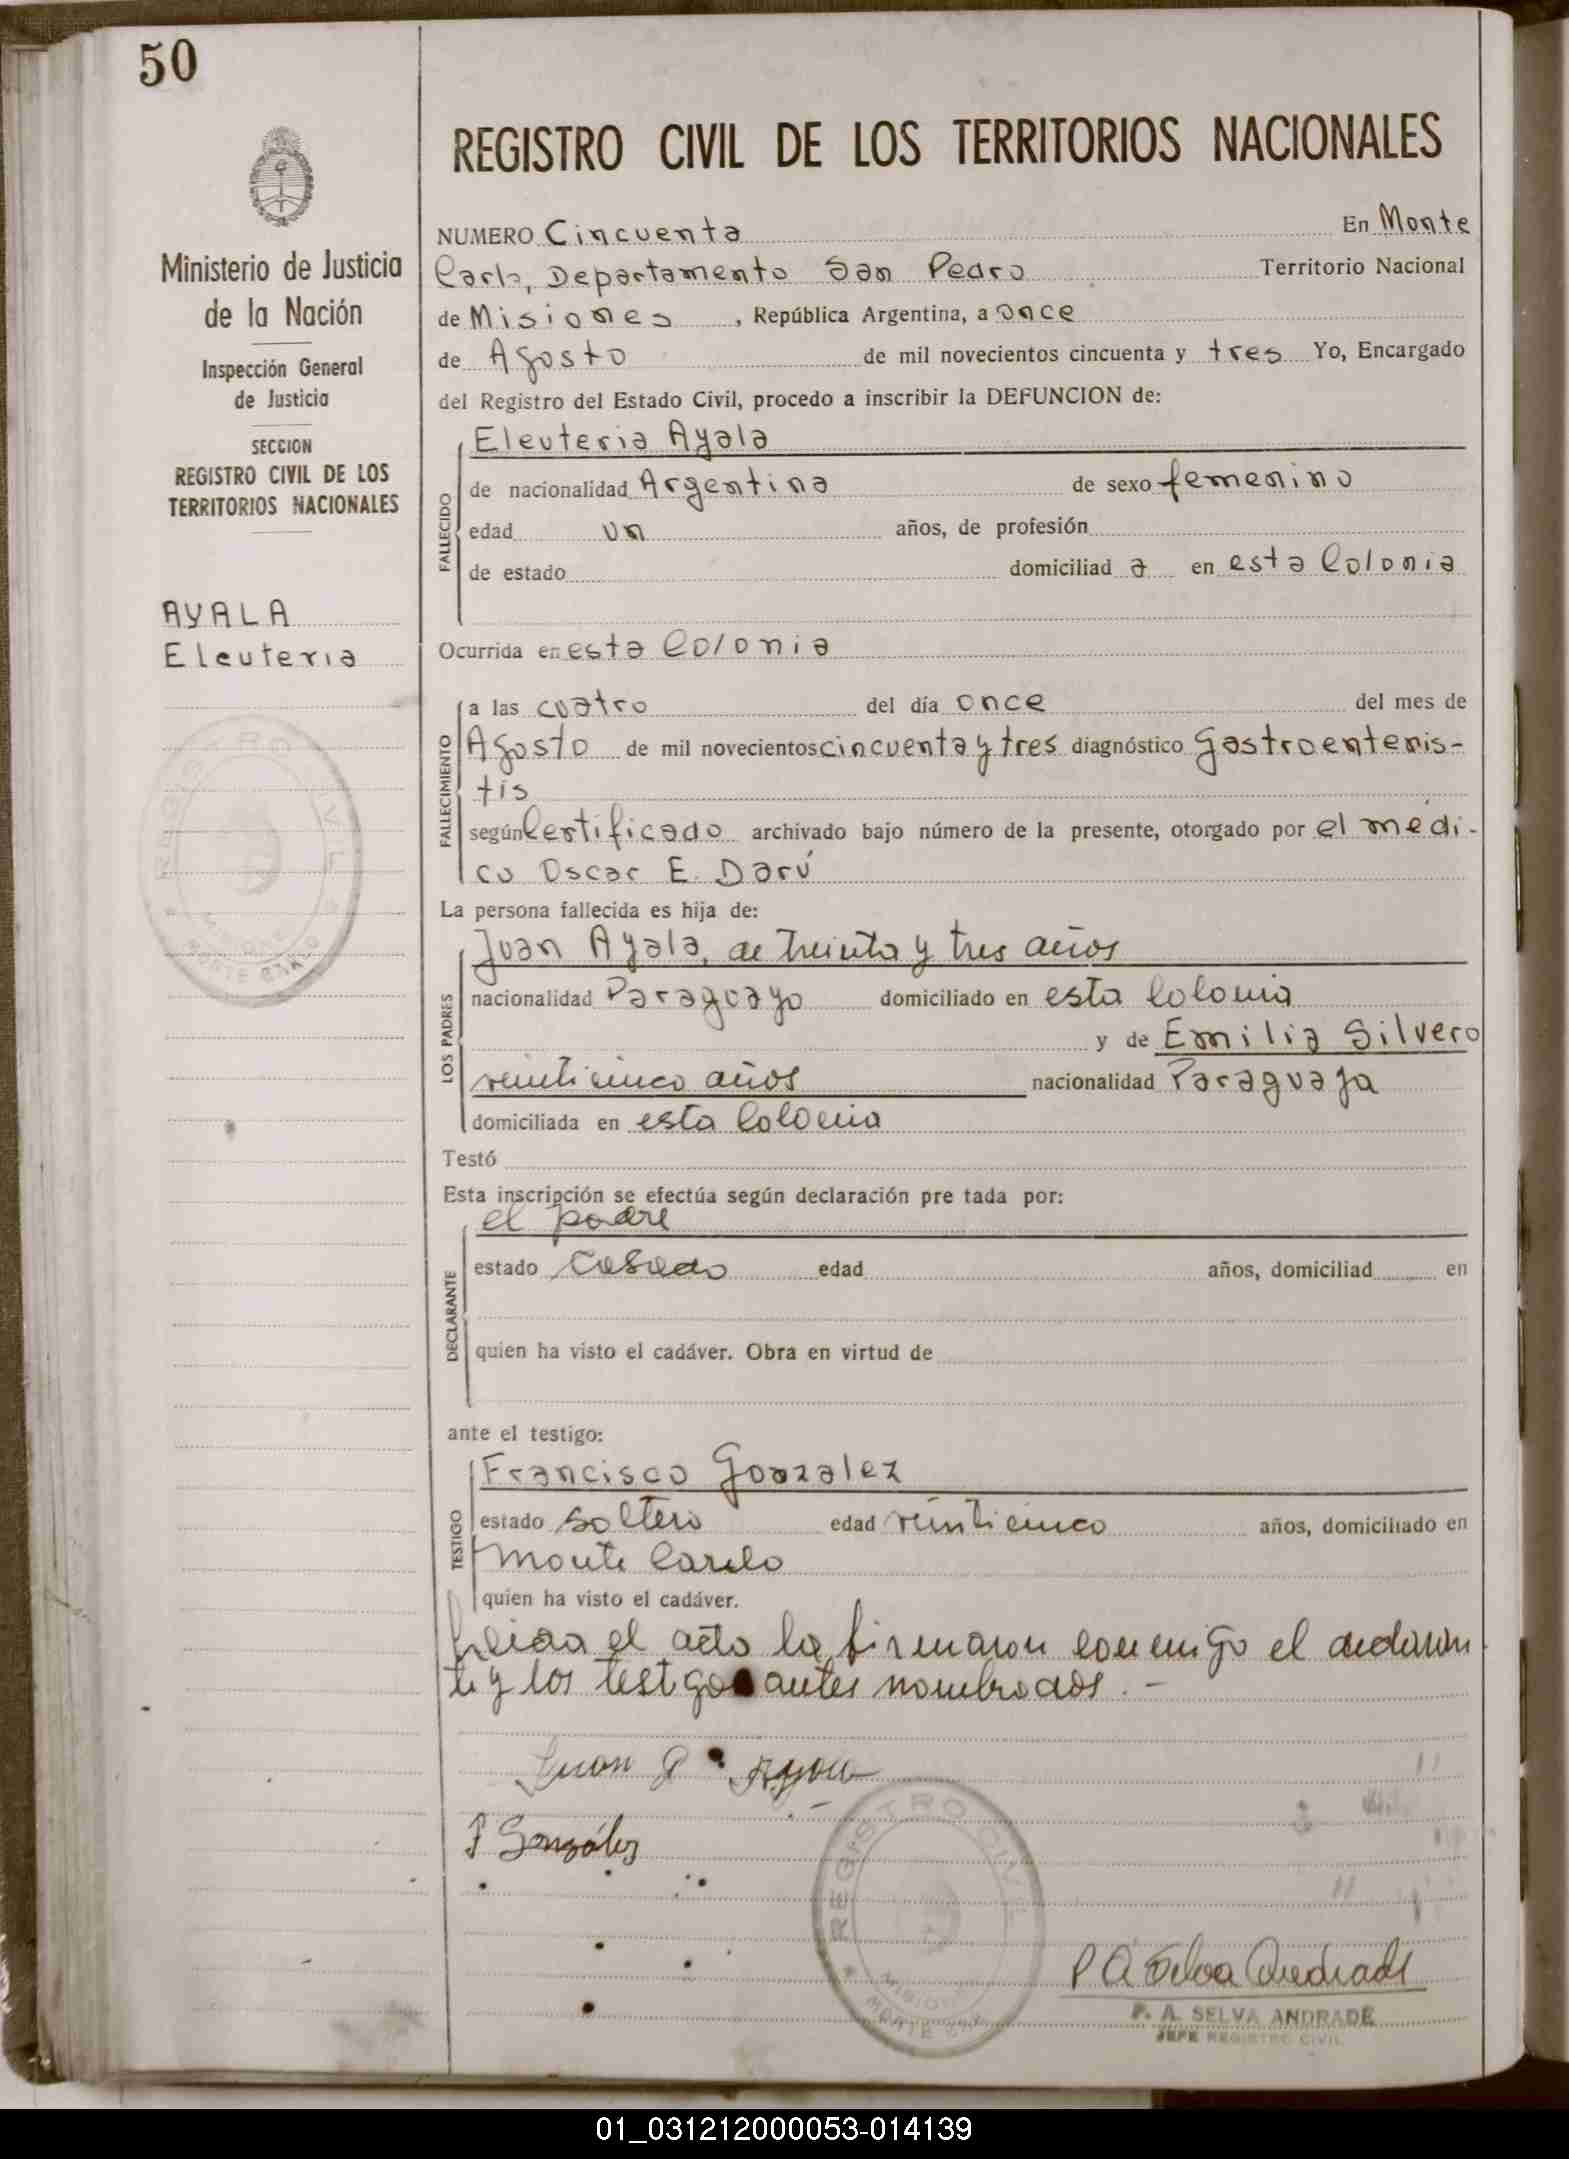 50
Ministerio de Justicia
de la Nación
Inspección General
de Justicia
SECCION
REGISTRO CIVIL DE LOS
TERRITORIOS NACIONALES
AYALA
Eleuteria
REGISTRO CIVIL
MISIONES
MONTE CARLO
REGISTRO CIVIL DE LOS TERRITORIOS NACIONALES
NUMERO Cincuenta En Monte
Carlo, Departamento San Pedro Territorio Nacional
de Misiones, República Argentina, a once
de Agosto de mil novecientos cincuenta y tres Yo, Encargado
del Registro del Estado Civil, procedo a inscribir la DEFUNCION de:
FALLECIDO
Eleuteria Ayala
de nacionalidad Argentina de sexo femenino
edad un años, de profesión
de estado domiciliad a en esta Colonia
Ocurrida en esta Colonia
FALLECIMIENTO
a las cuatro del día once del mes de
Agosto de mil novecientos cincuenta y tres diagnóstico Gastroenteris-
tis
según Certificado archivado bajo número de la presente, otorgado por el médi-
co Oscar E. Darú
La persona fallecida es hija de:
LOS PADRES
Juan Ayala, de treinta y tres años
nacionalidad Paraguayo domiciliado en esta Colonia
y de Emilia Silvero
veinticinco años nacionalidad Paraguaya
domiciliada en esta Colonia
Testó
Esta inscripción se efectúa según declaración pre tada por:
DECLARANTE
el padre
estado casado edad años, domiciliad en
quien ha visto el cadáver. Obra en virtud de
ante el testigo:
TESTIGO
Francisco Goazalez
estado soltero edad veinticinco años, domiciliado en
Monte Carlo
quien ha visto el cadáver.
Leida el acta la firmaron conmigo el declaran-
te y los testigos antes nombrados.-
Juan
F González
REGISTRO CIVIL
MISIONES
MONTE CARLO
P A Selva Andrade
P. A. SELVA ANDRADE
JEFE REGISTRO CIVIL
01_031212000053-014139